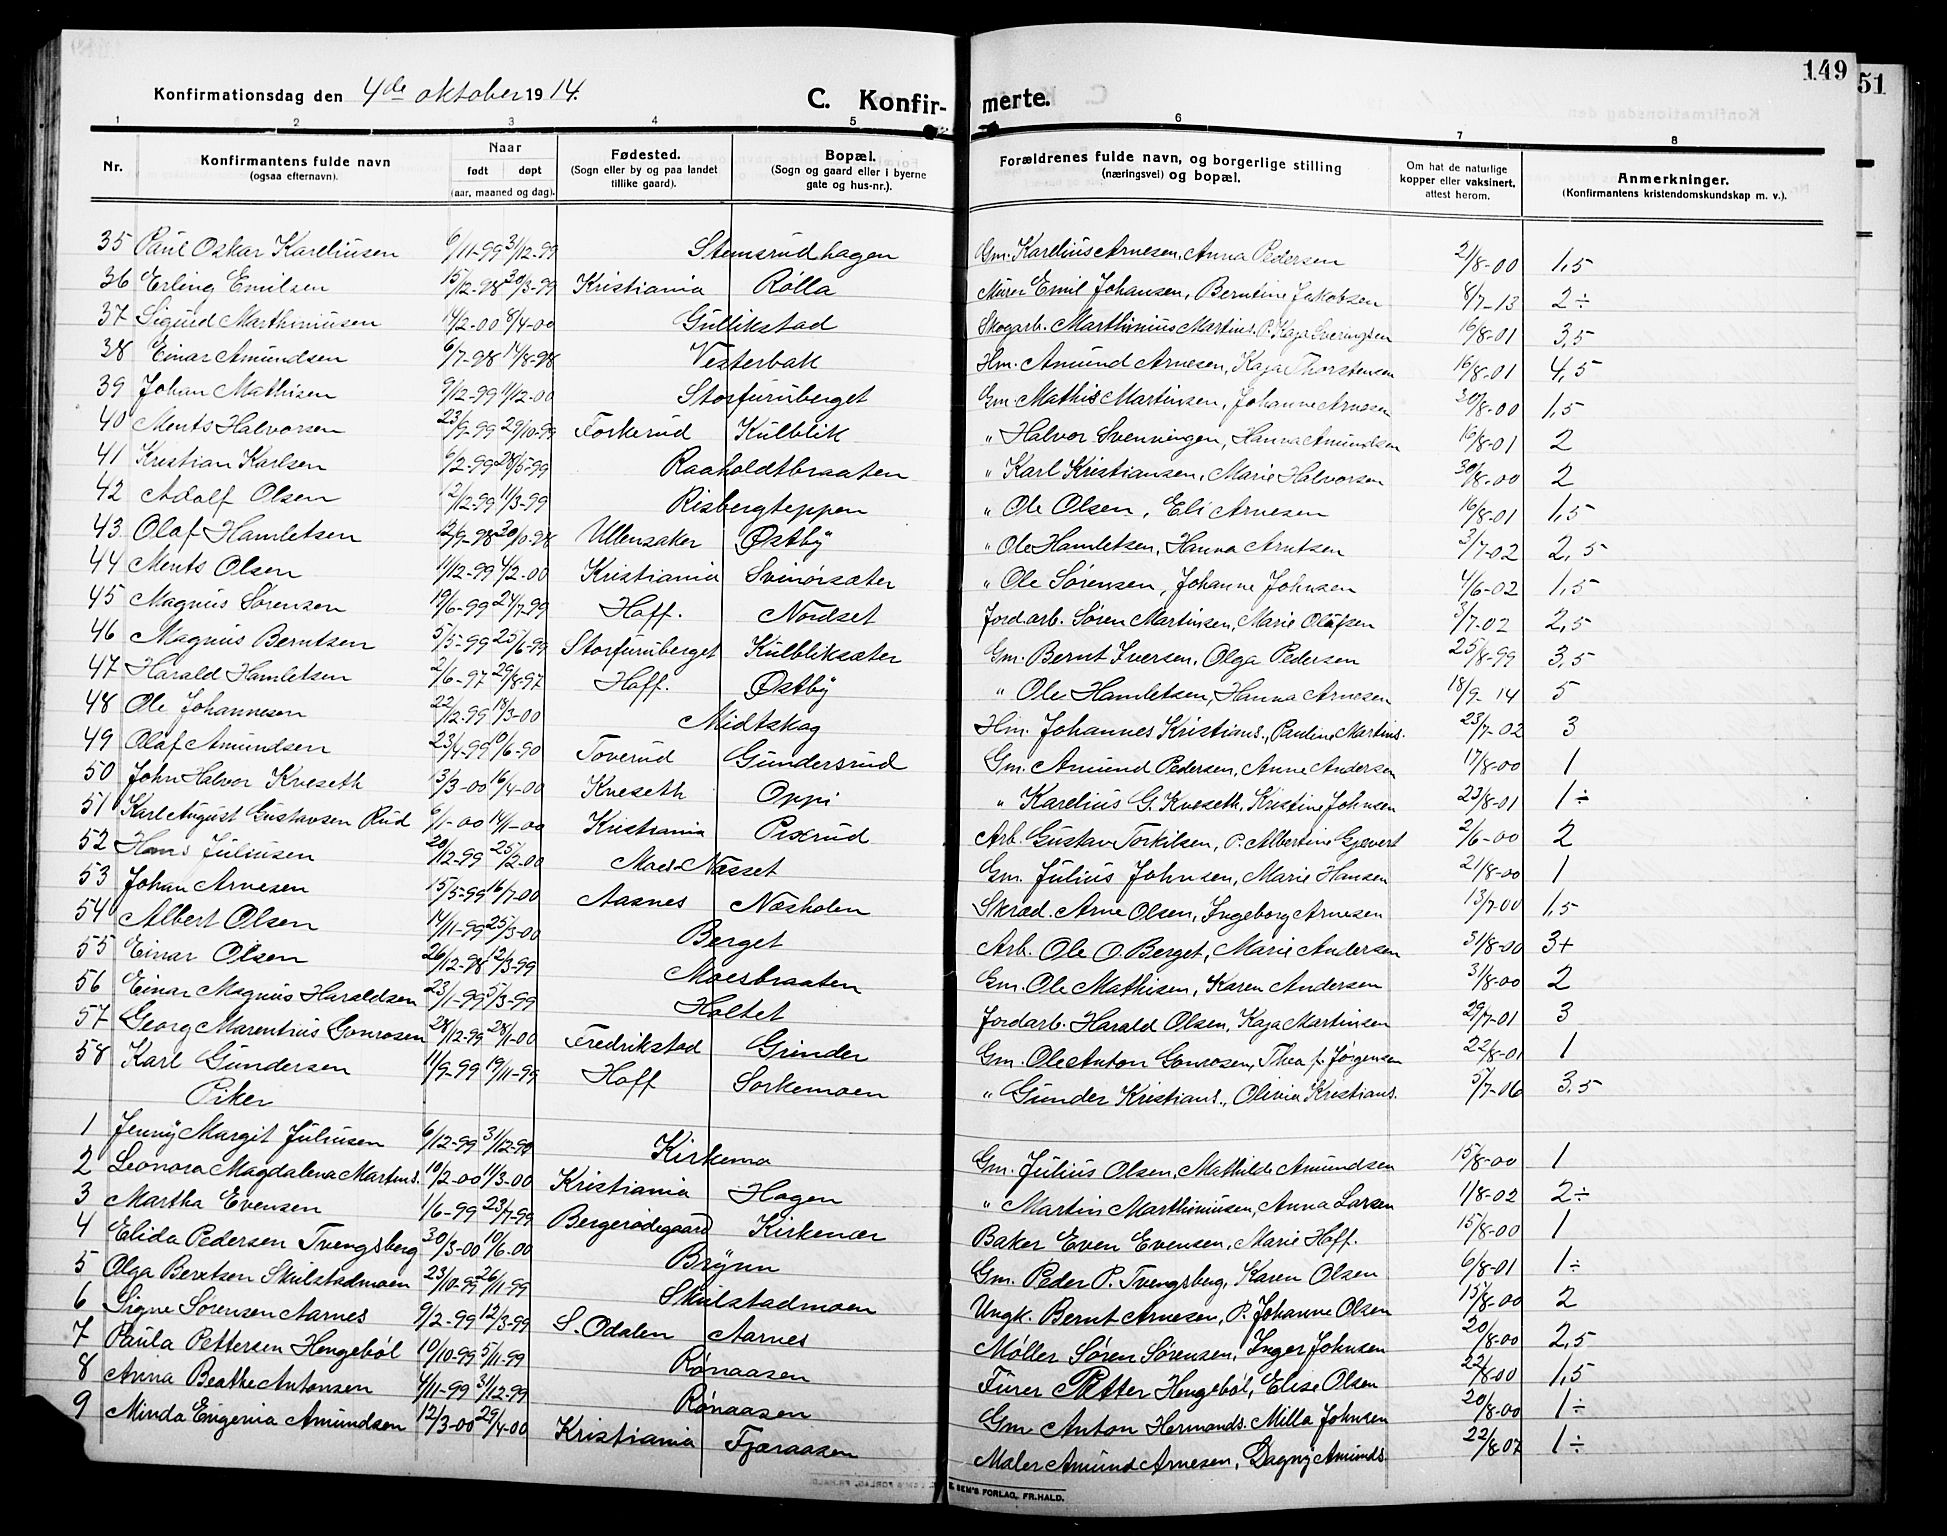 149
51
Konfirmationsdag den 4de oktober 1914.
C. Konfirmerte.
1 2 3 4 5 6 7 8
Nr. Konfirmantens fulde navn (ogsaa efternavn). Naar født døpt (aar, maaned og dag). Fødested. (Sogn eller by og paa landet tillike gaard). Bopæl. (Sogn og gaard eller i byerne gate og hus-nr.). Forældrenes fulde navn, og borgerlige stilling (næringsvei) og bopæl. Om hat de naturlige kopper eller vaksinert, attest herom. Anmerkninger. (Konfirmantens kristendomskundskap m. v.).
35 Paul Oskar Kareliusen 6/11-99 31/12-99 Stemsrudhagen Gm. Karelius Arnesen, Anna Pedersen 21/8-00 1,5
36 Erling Emilsen 15/12-98 30/3-99 Kristiania Rølla Murer Emil Johansen, Berntine Jakobsen 8/7-13 2÷
37 Sigurd Marthiniusen 14/2-00 8/4-00 Gullikstad Skogarb. Marthinius Martins. P. Kaja Sveringsen 16/8-01 3,5
38 Einar Amundsen 6/7-98 14/8-98 Vesterbak Hm. Amund Arnesen, Kaja Thorstensen 16/8-01 4,5
39 Johan Mathisen 9/12-99 1/12-00 Storfuruberget Gm Mathis Martinsen, Johanne Arnesen 30/8-00 1,5
40 Ments Halvorsen 23/9-99 29/10-99 Forkerud Kulblik " Halvor Svenningen, Hanna Amundsen 16/8-01 2
41 Kristian Karlsen 6/2-99 28/5-99 Raaholdtbraaten " Karl Kristiansen, Marie Halvorsen 30/8-00 2
42 Adolf Olsen 12/12-99 11/3-99 Risbergteppen " Ole Olsen, Eli Arnesen 16/8-01 1,5
43 Olaf Hamletsen 12/9-98 30/10-98 Ullensaker Østby " Ole Hamletsen, Hanna Arntsen 3/7-02 2,5
44 Ments Olsen 11/12-99 4/2-00 Kristiania Svinørsæter " Ole Sørensen, Johanne Johnsen 4/6-02 1,5
45 Magnus Sørensen 19/6-99 24/7-99 Hoff. Nordset Jordarb. Søren Martinsen, Marie Olafsen 3/7-02 2,5
46 Magnus Berntsen 5/5-99 25/6-99 Storfuruberget Kulbliksæter Gm. Bernt Iversen, Olga Pedersen 25/8-99 3,5
47 Harald Hamletsen 2/6-97 29/8-97 Hoff. Østby " Ole Hamletsen, Hanna Arnesen 18/9-14 5
48 Ole Johannesen 22/12-99 18/3-00 Midtskog Hm. Johannes Kristians., Pauline Martins. 23/7-02 3
49 Olaf Amundsen 23/4-99 10/6-90 Toverud Gundersrud Gm. Amund Pedersen, Anne Andersen 17/8-00 1
50 John Halvor Kveseth 13/3-00 16/4-00 Kveseth Oppi " Karelius G. Kveseth, Kristine Johnsen 23/8-01 1÷
51 Karl August Gustavsen Rud 6/1-00 14/1-00 Kristiania Pixrud Arb. Gustav Torkilsen, P. Albertine Gjevert 2/6-00 2
52 Hans Juliusen 20/12-99 25/2-00 Moes Næsset Gm. Julius Johnsen, Marie Hansen 21/8-00 1
53 Johan Arnesen 15/5-99 16/7-00 Aasnes Næsholen Skræd. Arne Olsen, Ingeborg Arnesen 13/7-00 1,5
54 Albert Olsen 14/11-99 25/3-00 Berget Arb. Ole O. Berget, Marie Andersen 31/8-00 3+
55 Einar Olsen 26/12-98 12/3-99 Moesbraaten Gm. Ole Mathisen, Karen Andersen 31/8-00 2
56 Einar Magnus Haraldsen 23/1-99 5/3-99 Holtet Jordarb. Harald Olsen, Kaja Martinsen 29/7-01 3
57 Georg Marentius Gonrosen 28/12-99 28/1-00 Fredrikstad Grinder Gm. Ole Anton Gonrosen, Thea f. Jørgensen 22/8-01 1
58 Karl Gundersen 11/9-99 19/11-99 Hoff Sorkemoen " Gunder Kristians., Olivia Kristians. 5/7-06 3,5
Piker
1 Jenny Margit Juliusen 6/12-99 31/12-99 Kirkemo Gm. Julius Olsen, Mathilde Amundsen 15/8-00 1
2 Leonora Magdalena Martins. 10/2-00 11/3-00 Kristiania Hagen " Martin Marthiniusen, Anna Larsen 1/8-02 2÷
3 Martha Evensen 1/6-99 23/7-99 Bergerødegaard Kirkenær Baker Even Evensen, Marie Hoff. 15/8-00 1
4 Elida Pedersen Tvengsberg 30/3-00 10/6-00 Brynn Gm. Peder P. Tvengsberg, Karen Olsen 6/8-01 1÷
5 Olga Berntsen Skulstadmoen 23/10-99 26/11-99 Skulstadmoen Ungk. Bernt Arnesen, P. Johanne Olsen 15/8-00 2
6 Signe Sørensen Aarnes 9/2-99 12/3-99 S. Odalen Aarnes Møller Søren Sørensen, Inger Johnsen 20/8-00 2,5
7 Paula Pettersen Hengebøl 10/10-99 5/11-99 Rønaasen Furer Petter Hengebøl, Elise Olsen 22/8-00 1,5
8 Anna Beathe Antonsen 4/11-99 31/12-99 Rønaasen Gm Anton Hermands. Milla Johnsen 20/8-00 1÷
9 Minda Eugenia Amundsen 12/3-00 29/4-00 Kristiania Fjæraasen Maler Amund Arnesen, Dagny Amunds. 22/8-07 1÷
SEM'S FORLAG, FR.HALD.